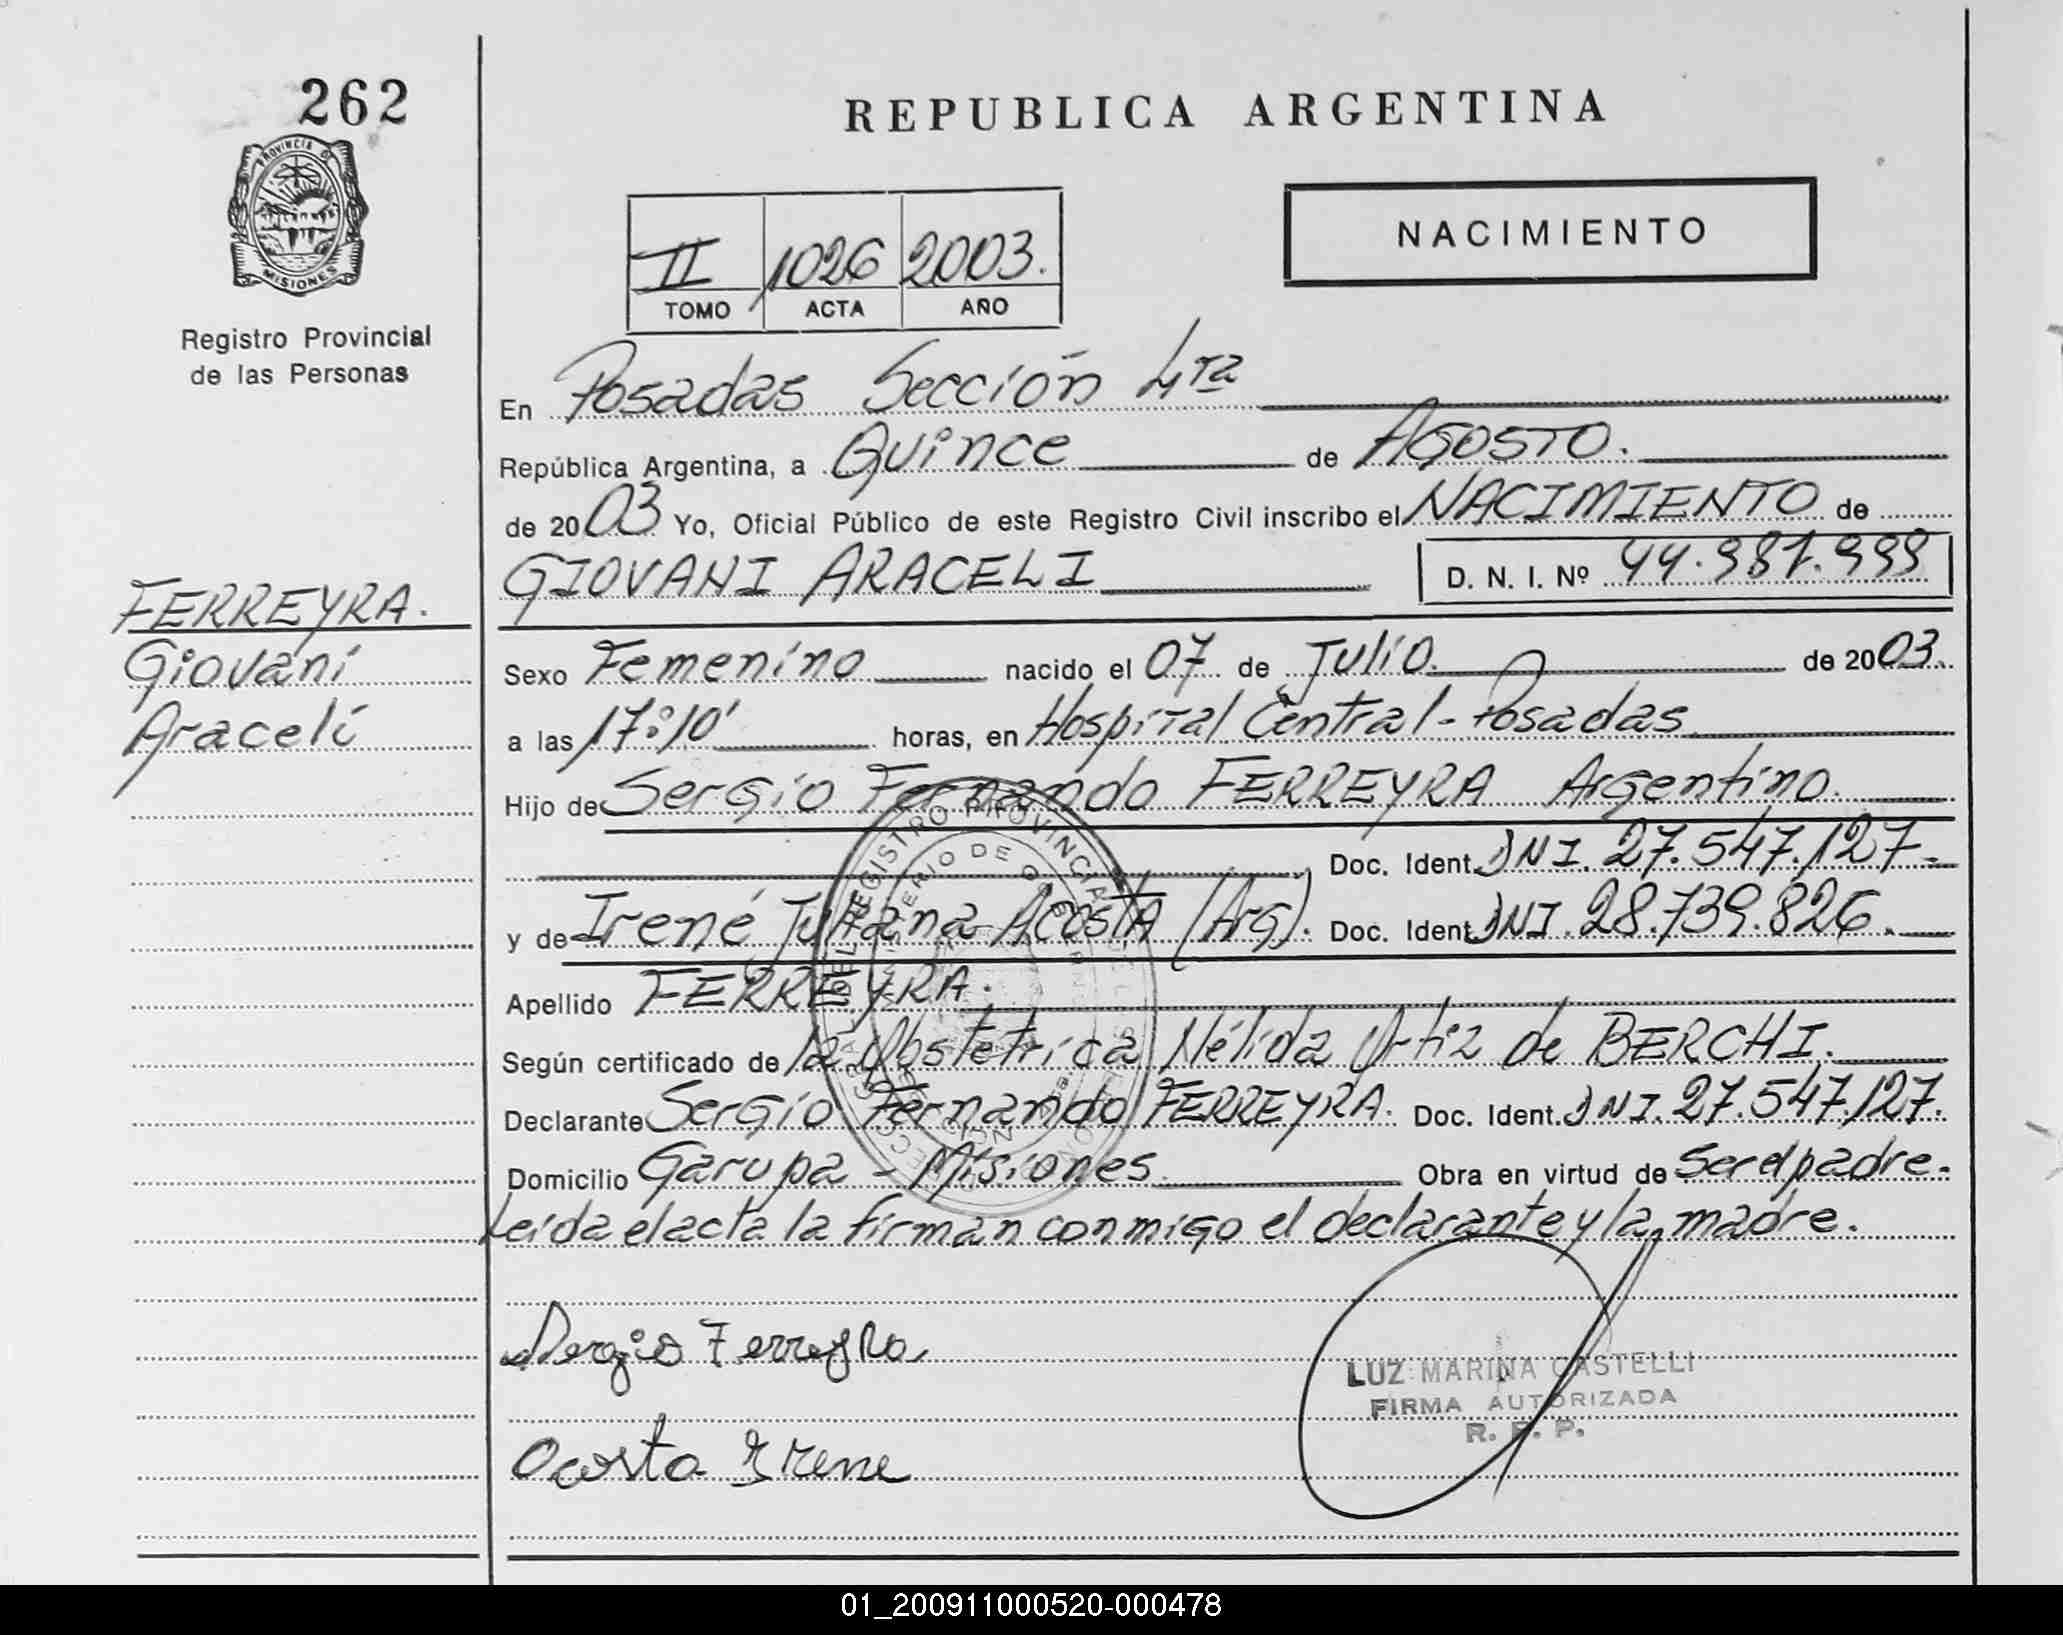 262
REPUBLICA ARGENTINA
PROVINCIA DE
MISIONES
Registro Provincial
de las Personas
II 1026 2003.
TOMO ACTA AÑO
NACIMIENTO
En Posadas Sección 4ta
República Argentina, a Quince de AGOSTO.
de 2003 Yo, Oficial Público de este Registro Civil inscribo el NACIMIENTO de
GIOVANI ARACELI D. N. I. Nº 44.981.999
FERREYRA.
Giovani
Araceli
Sexo Femenino nacido el 07 de Julio. de 2003.
a las 17:10' horas, en Hospital Central - Posadas
Hijo de Sergio Fernando FERREYRA Argentino.
Doc. Ident. DNI. 27.547.127.
y de Irené Juliana ACOSTA (Arg). Doc. Ident. DNI. 28.739.826.
Apellido FERREYRA.
Según certificado de la Obstetrica Nélida Ortiz de BERCHI.
Declarante Sergio Fernando FERREYRA. Doc. Ident. DNI. 27.547.127.
Domicilio Garupa - Misiones. Obra en virtud de Ser el padre.
Leída el acta la firman conmigo el declarante y la madre.
REGISTRO PROVINCIAL DE LAS
Sergio Ferreyra.
LUZ MARINA CASTELLI
FIRMA AUTORIZADA
R. P. P.
Acosta Irene
01_200911000520-000478